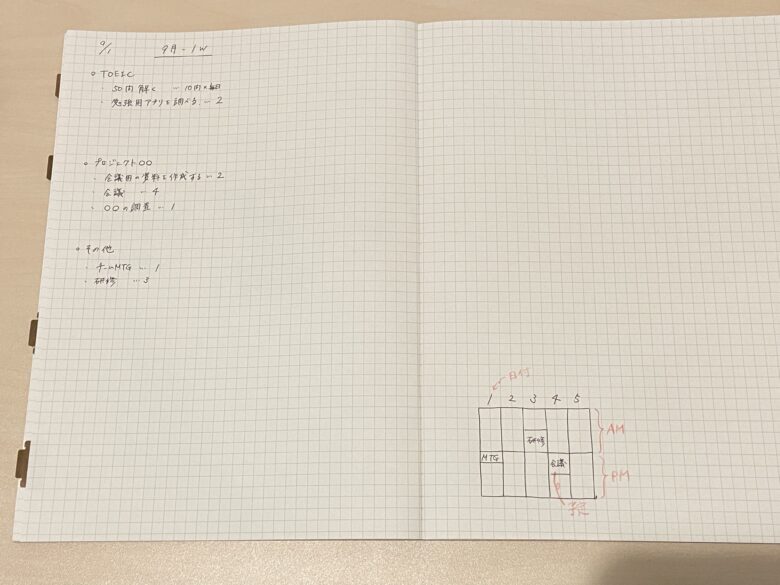 9/1
9月-1W
○ TOEIC
・50問解く … 10問×毎日
・勉強用アプリを調べる … 2
○ プロジェクト○○
・会議用の資料を作成する … 2
・会議 … 4
・○○の調査 … 1
○ その他
・チームMTG … 1
・研修 … 3
日付
1 2 3 4 5
研修
AM
MTG 会議
PM
予定